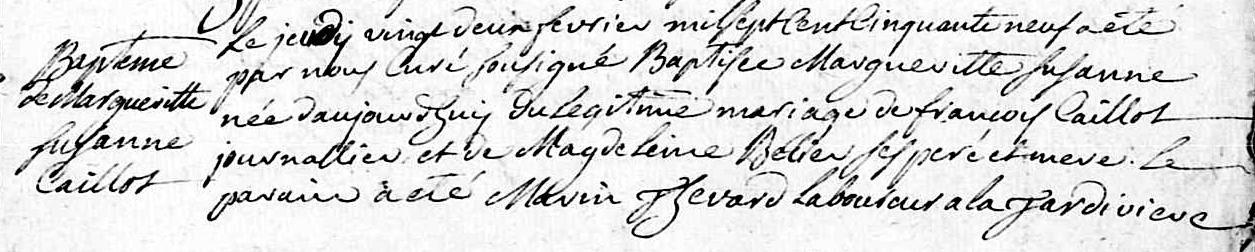 Bapteme
de Margueritte
Susanne
Caillot
Le jeudy vingt deux fevrier mil sept Cent Cinquante neuf a eté
par nous Curé sousigné Baptisee Margueritte Susanne
née d'aujourd'huy du legitime mariage de françois Caillot
journallier et de Magdeleine Belier ses pere et mere. Le
parain à eté Marin Laboureur a la